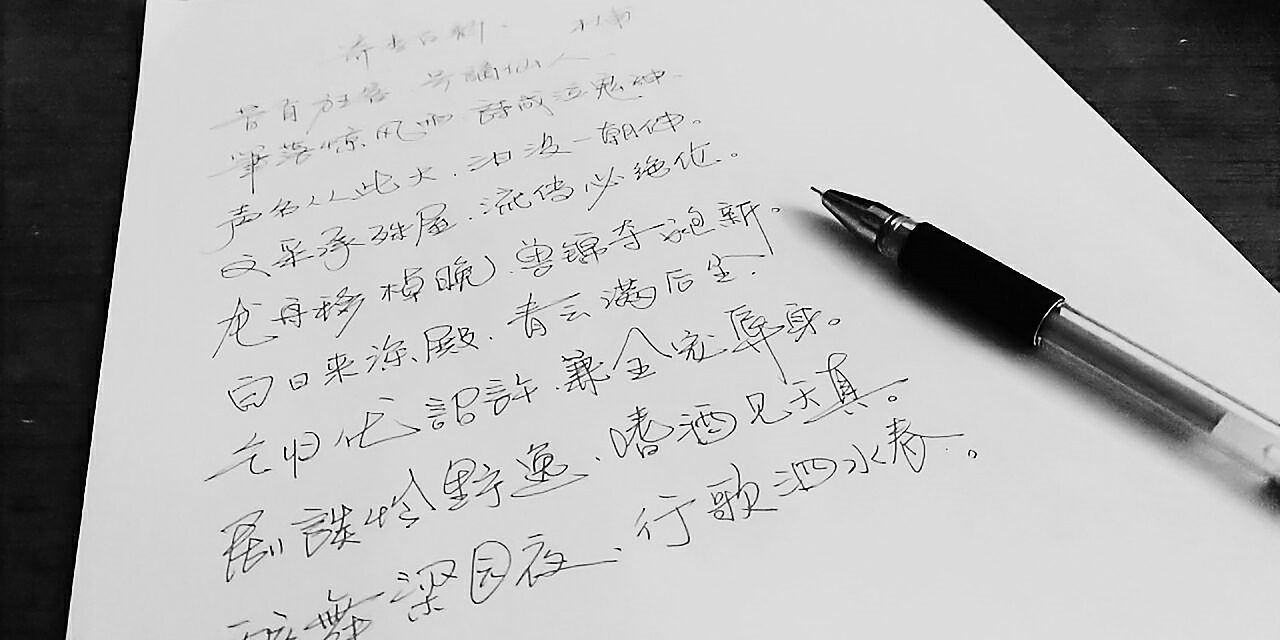 寄李白 杜甫
昔有狂客，号謫仙人
筆落惊风雨，詩成泣鬼神
声名从此大，汩没一朝伸。
文采承殊渥，流传必绝伦。
龙舟移棹晚，兽锦夺袍新。
白日来深殿，青云满后尘。
乞归优詔許，兼全宠辱身。
剧談怜野逸，嗜酒见天真。
醉舞梁园夜，行歌泗水春。